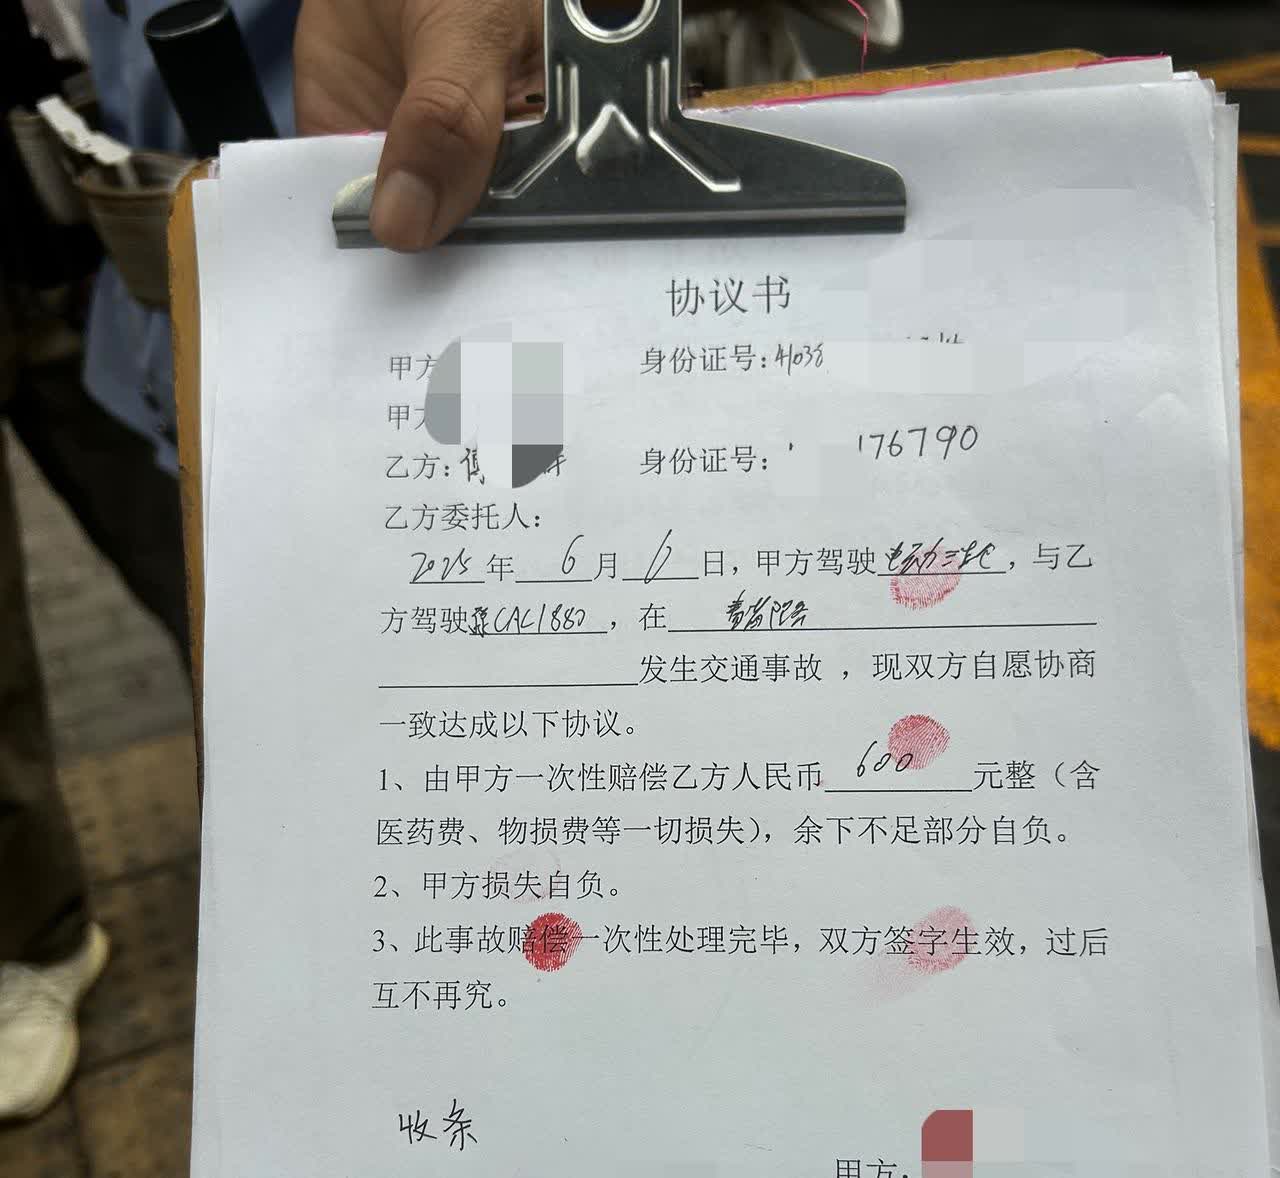 协议书
甲方 身份证号：41038
甲方
乙方：傅 身份证号： 176790
乙方委托人：
2025年 6月 6日，甲方驾驶电动三轮，与乙
方驾驶 CAC1880，在
发生交通事故，现双方自愿协商
一致达成以下协议。
1、由甲方一次性赔偿乙方人民币 600 元整（含
医药费、物损费等一切损失），余下不足部分自负。
2、甲方损失自负。
3、此事故赔偿一次性处理完毕，双方签字生效，过后
互不再究。
收条
甲方：